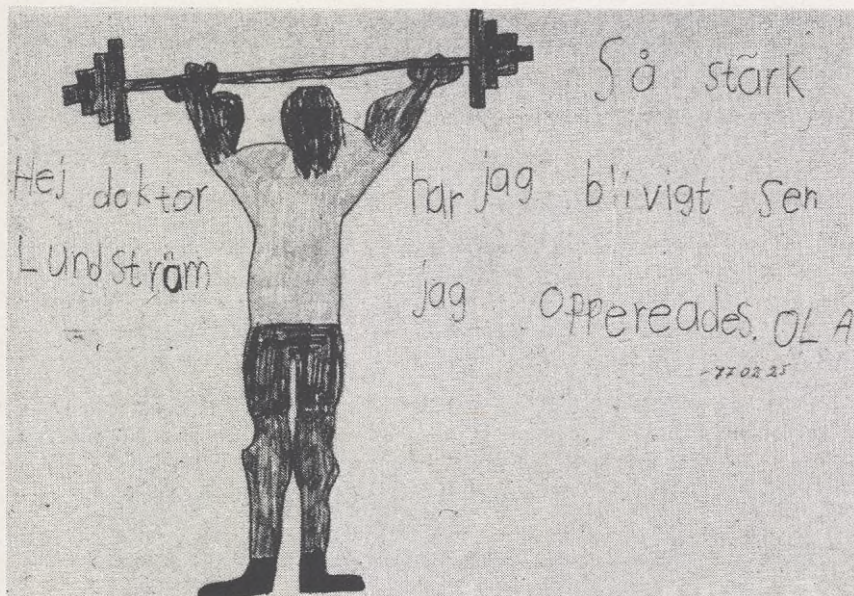 Hej doktor
Lundsträm
Så stärk
har jag blivigt sen
jag oppereades. OLA
-770225